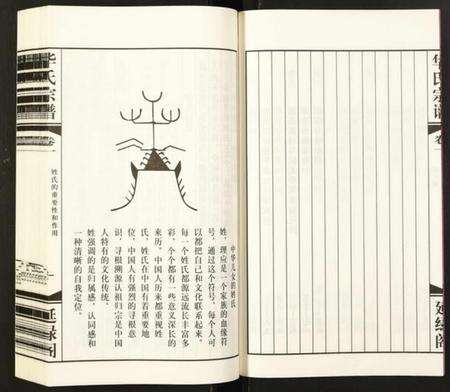 华氏宗谱
卷一
延绿阁
中华儿女的姓氏
姓，理应是一个家族的血缘符
号，通过这个符号，每个人可
以都把自己和文化联系起来。
每一个姓氏都源远流长丰富多
彩，个个都有一些意义深长的
来历。中国人历来都重视姓
氏，姓氏在中国有着重要地
位，中国人有强烈的寻根意
识，寻根溯源认祖归宗是中国
人特有的文化传统。
姓强调的是归属感，认同感和
一种清晰的自我定位。
华氏宗谱
卷一
姓氏的重要性和作用
延绿阁